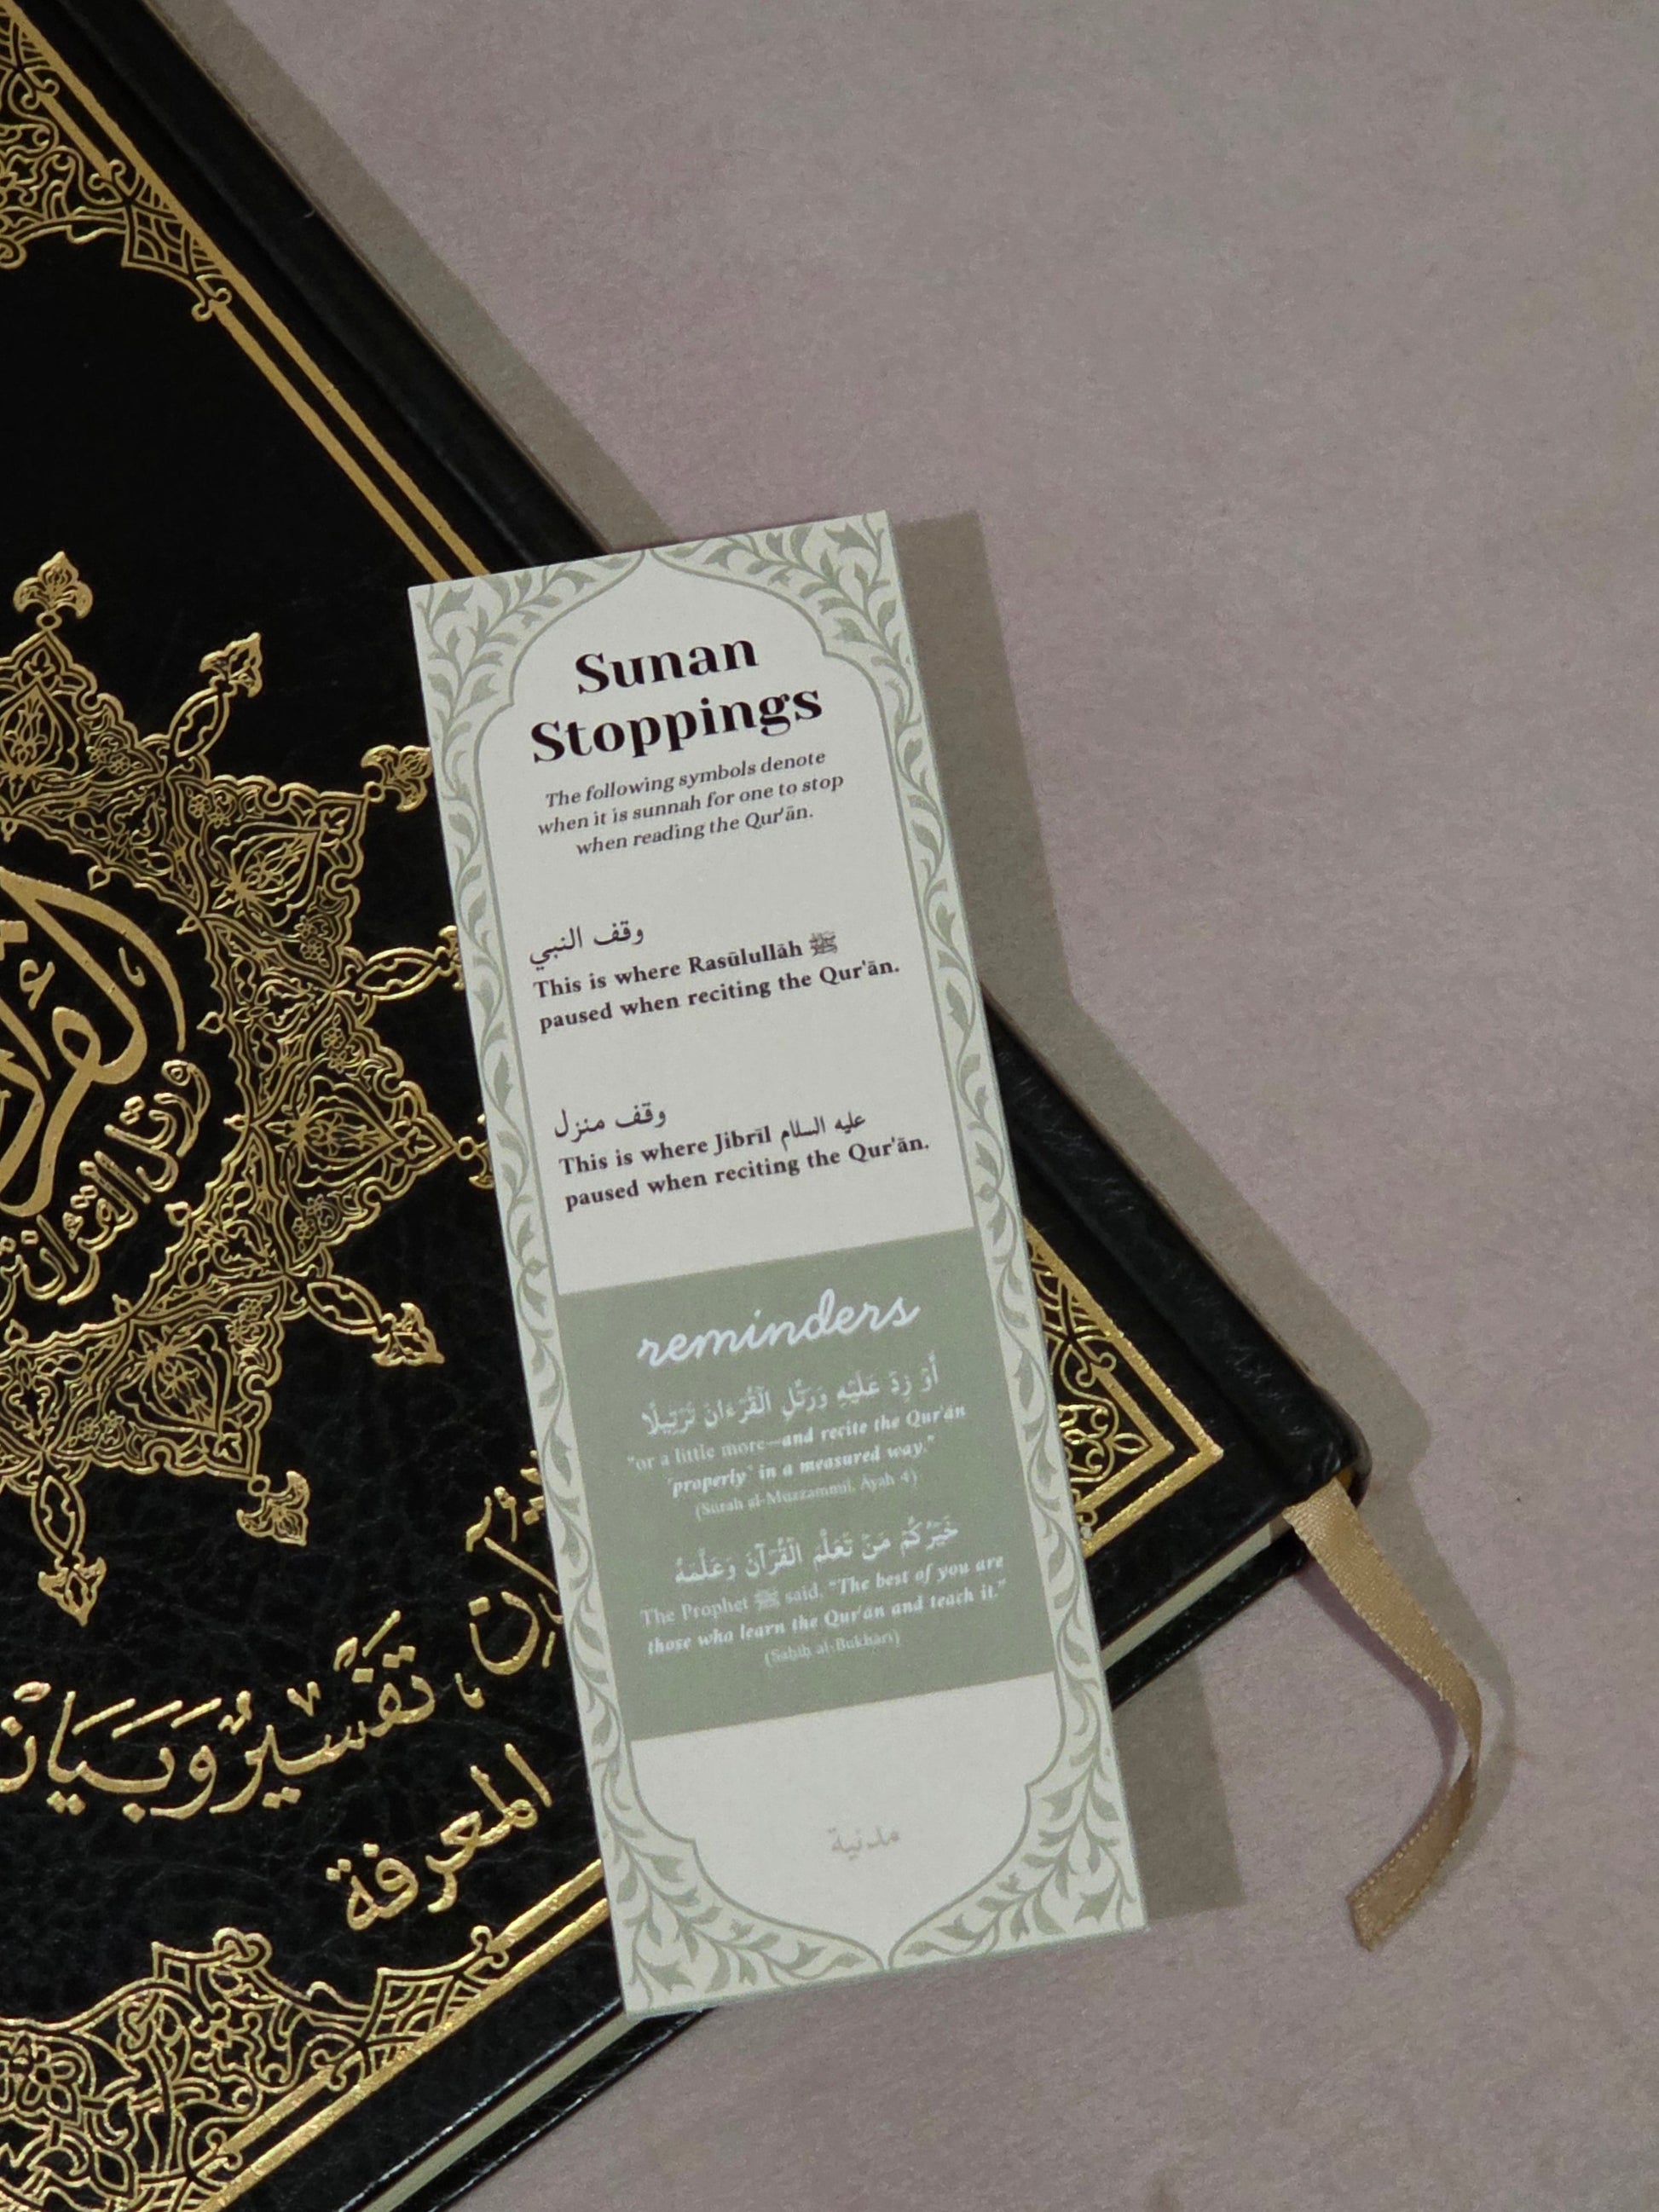 Sunan
Stoppings
The following symbols denote
when it is sunnah for one to stop
when reading the Qur'ān.
وقف النبي
This is where Rasūlullāh ﷺ
paused when reciting the Qur'ān.
وقف منزل
This is where Jibrīl عليه السلام
paused when reciting the Qur'ān.
reminders
أَوْ زِدْ عَلَيْهِ وَرَتِّلِ الْقُرْءَانَ تَرْتِيلًا
"or a little more—and recite the Qur'ān
'properly' in a measured way."
(Sūrah al-Muzzammil, Āyah 4)
خَيْرُكُمْ مَنْ تَعَلَّمَ الْقُرْآنَ وَعَلَّمَهُ
The Prophet ﷺ said, "The best of you are
those who learn the Qur'ān and teach it."
(Ṣaḥīḥ al-Bukhārī)
مدنية
ورتل القرآن
تفسير وبيان
المعرفة